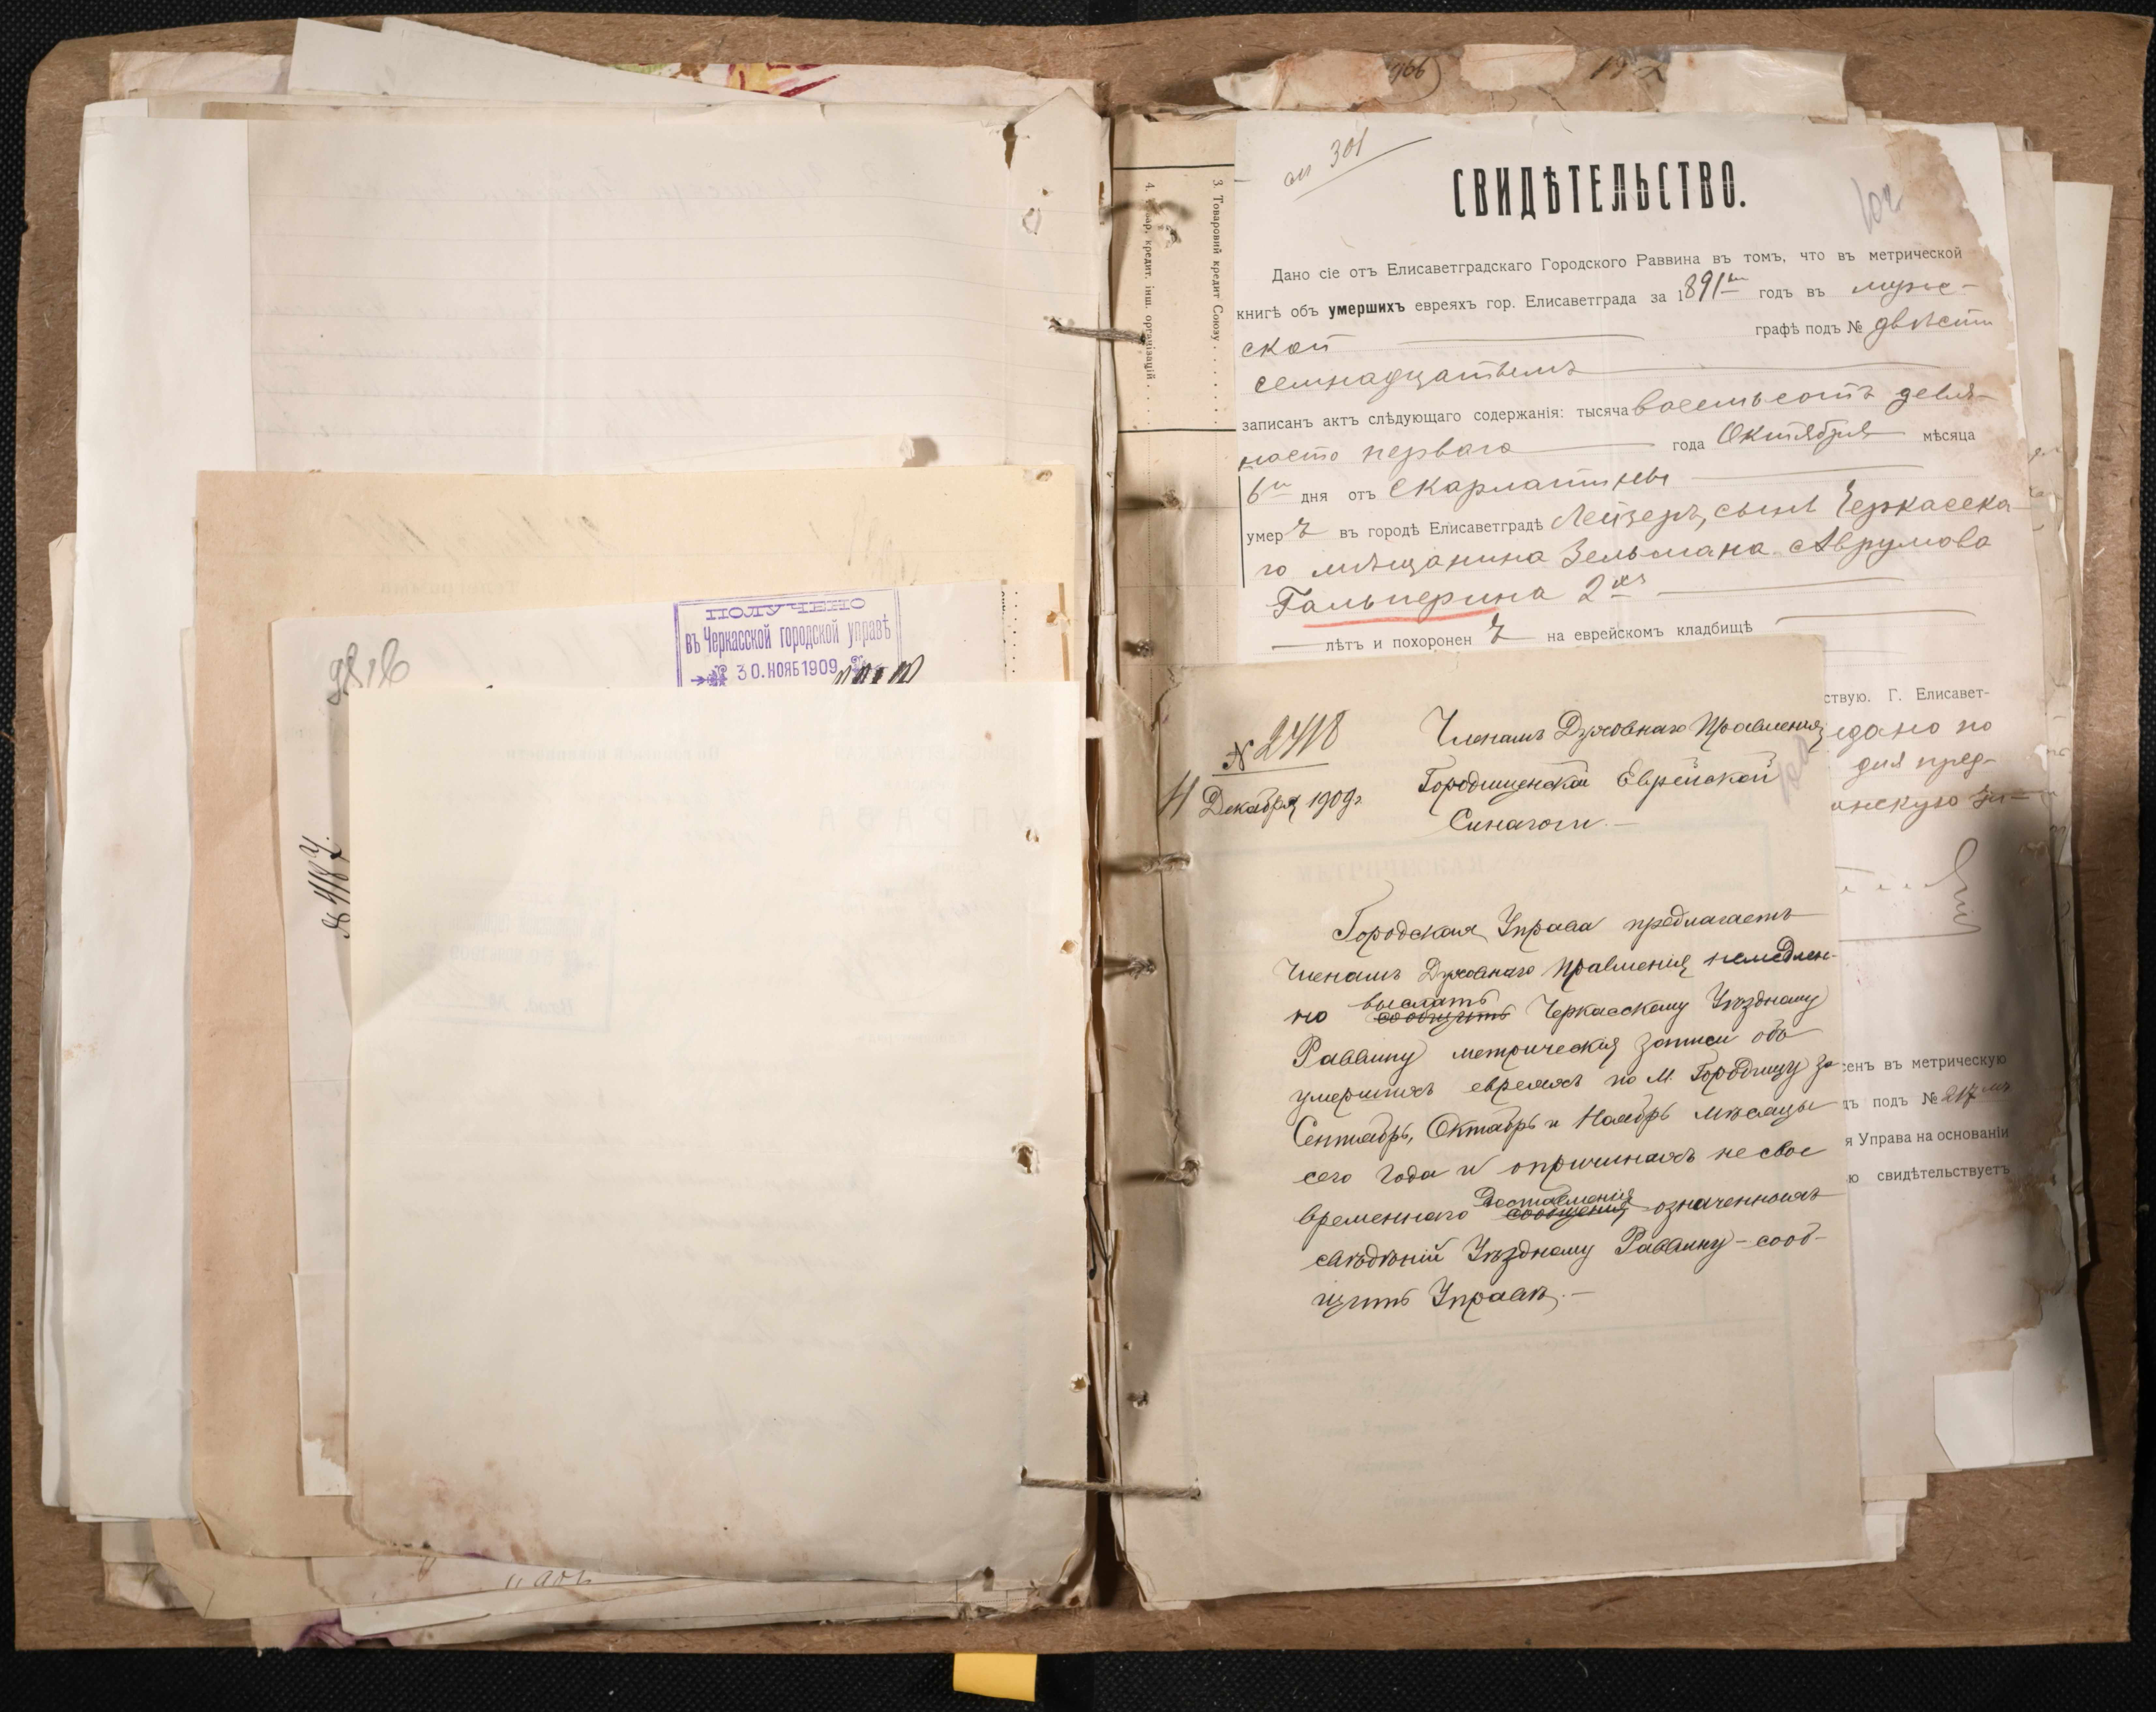 966
ПОЛУЧЕНО
въ Черкасской городской управѣ
30.НОЯБ 1909
3. Товаровий кредит Союзу
4. кредит. інш. організацій
301
СВИДѢТЕЛЬСТВО.
102
Дано сіе отъ Елисаветградскаго Городского Раввина въ томъ, что въ метрической
книгѣ объ умершихъ евреяхъ гор. Елисаветграда за 1891й годъ въ муже-
ской графѣ подъ № двѣсти
семнадцатымъ
записанъ актъ слѣдующаго содержанія: тысяча восемьсотъ девя-
носто перваго года Октября мѣсяца
6го дня отъ скарлатины
умеръ въ городѣ Елисаветградѣ Лейзеръ, сынъ Черкасска-
го мѣщанина Зельмана Аврумова
Гальперина 2хъ
лѣтъ и похороненъ на еврейскомъ кладбищѣ
ствую. Г. Елисавет-
дано по
для пред-
анскую
сенъ въ метрическую
подъ № 217мъ
я Управа на основаніи
ю свидѣтельствуетъ
№ 2418
4 Декабря 1909г.
Членамъ Духовнаго Правленія
Городищенской Еврейской
Синагоги.—
Городская Управа предлагаетъ
Членамъ Духовнаго Правленія немедлен-
но выслать сообщить Черкасскому Уѣздному
Раввину метрическія записи объ
умершихъ евреяхъ по М. Городищу за
Сентябрь, Октябрь и Ноябрь мѣсяцы
сего года и о причинахъ несвое
временнаго доставленія сообщенія означенныхъ
свѣдѣній Уѣздному Раввину – сооб-
щить Управѣ.—